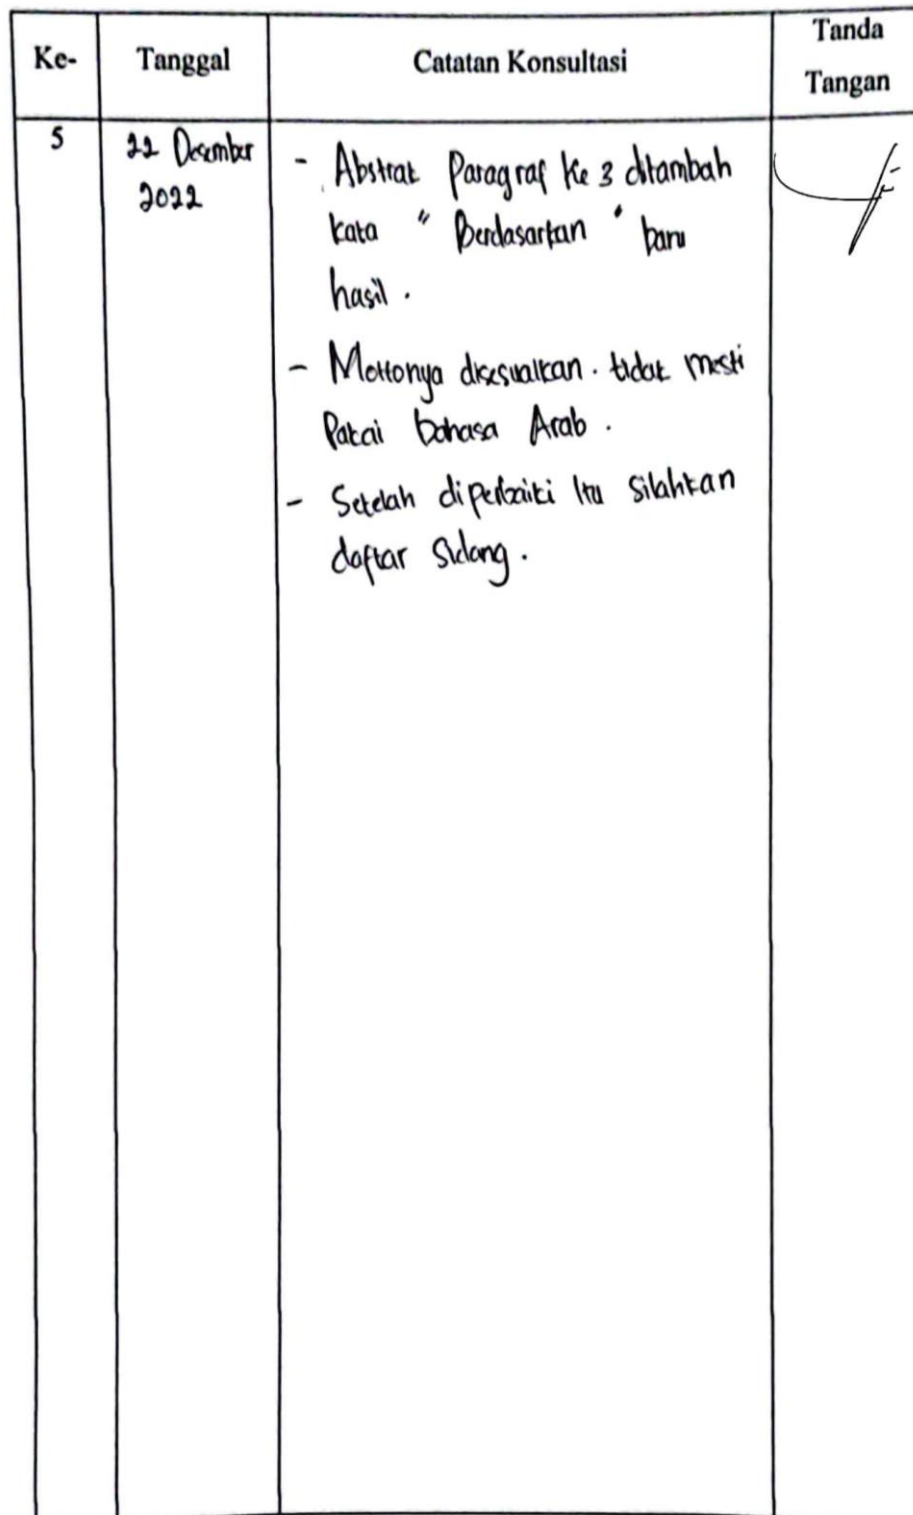 Ke- Tanggal Catatan Konsultasi Tanda Tangan
5 22 Desember 2022
- Abstrak Paragraf Ke 3 ditambah
kata " Berdasarkan " baru
hasil .
- Mottonya disesuaikan . tidak mesti
Pakai bahasa Arab .
- Setelah diperbaiki Itu silahkan
daftar Sidang .